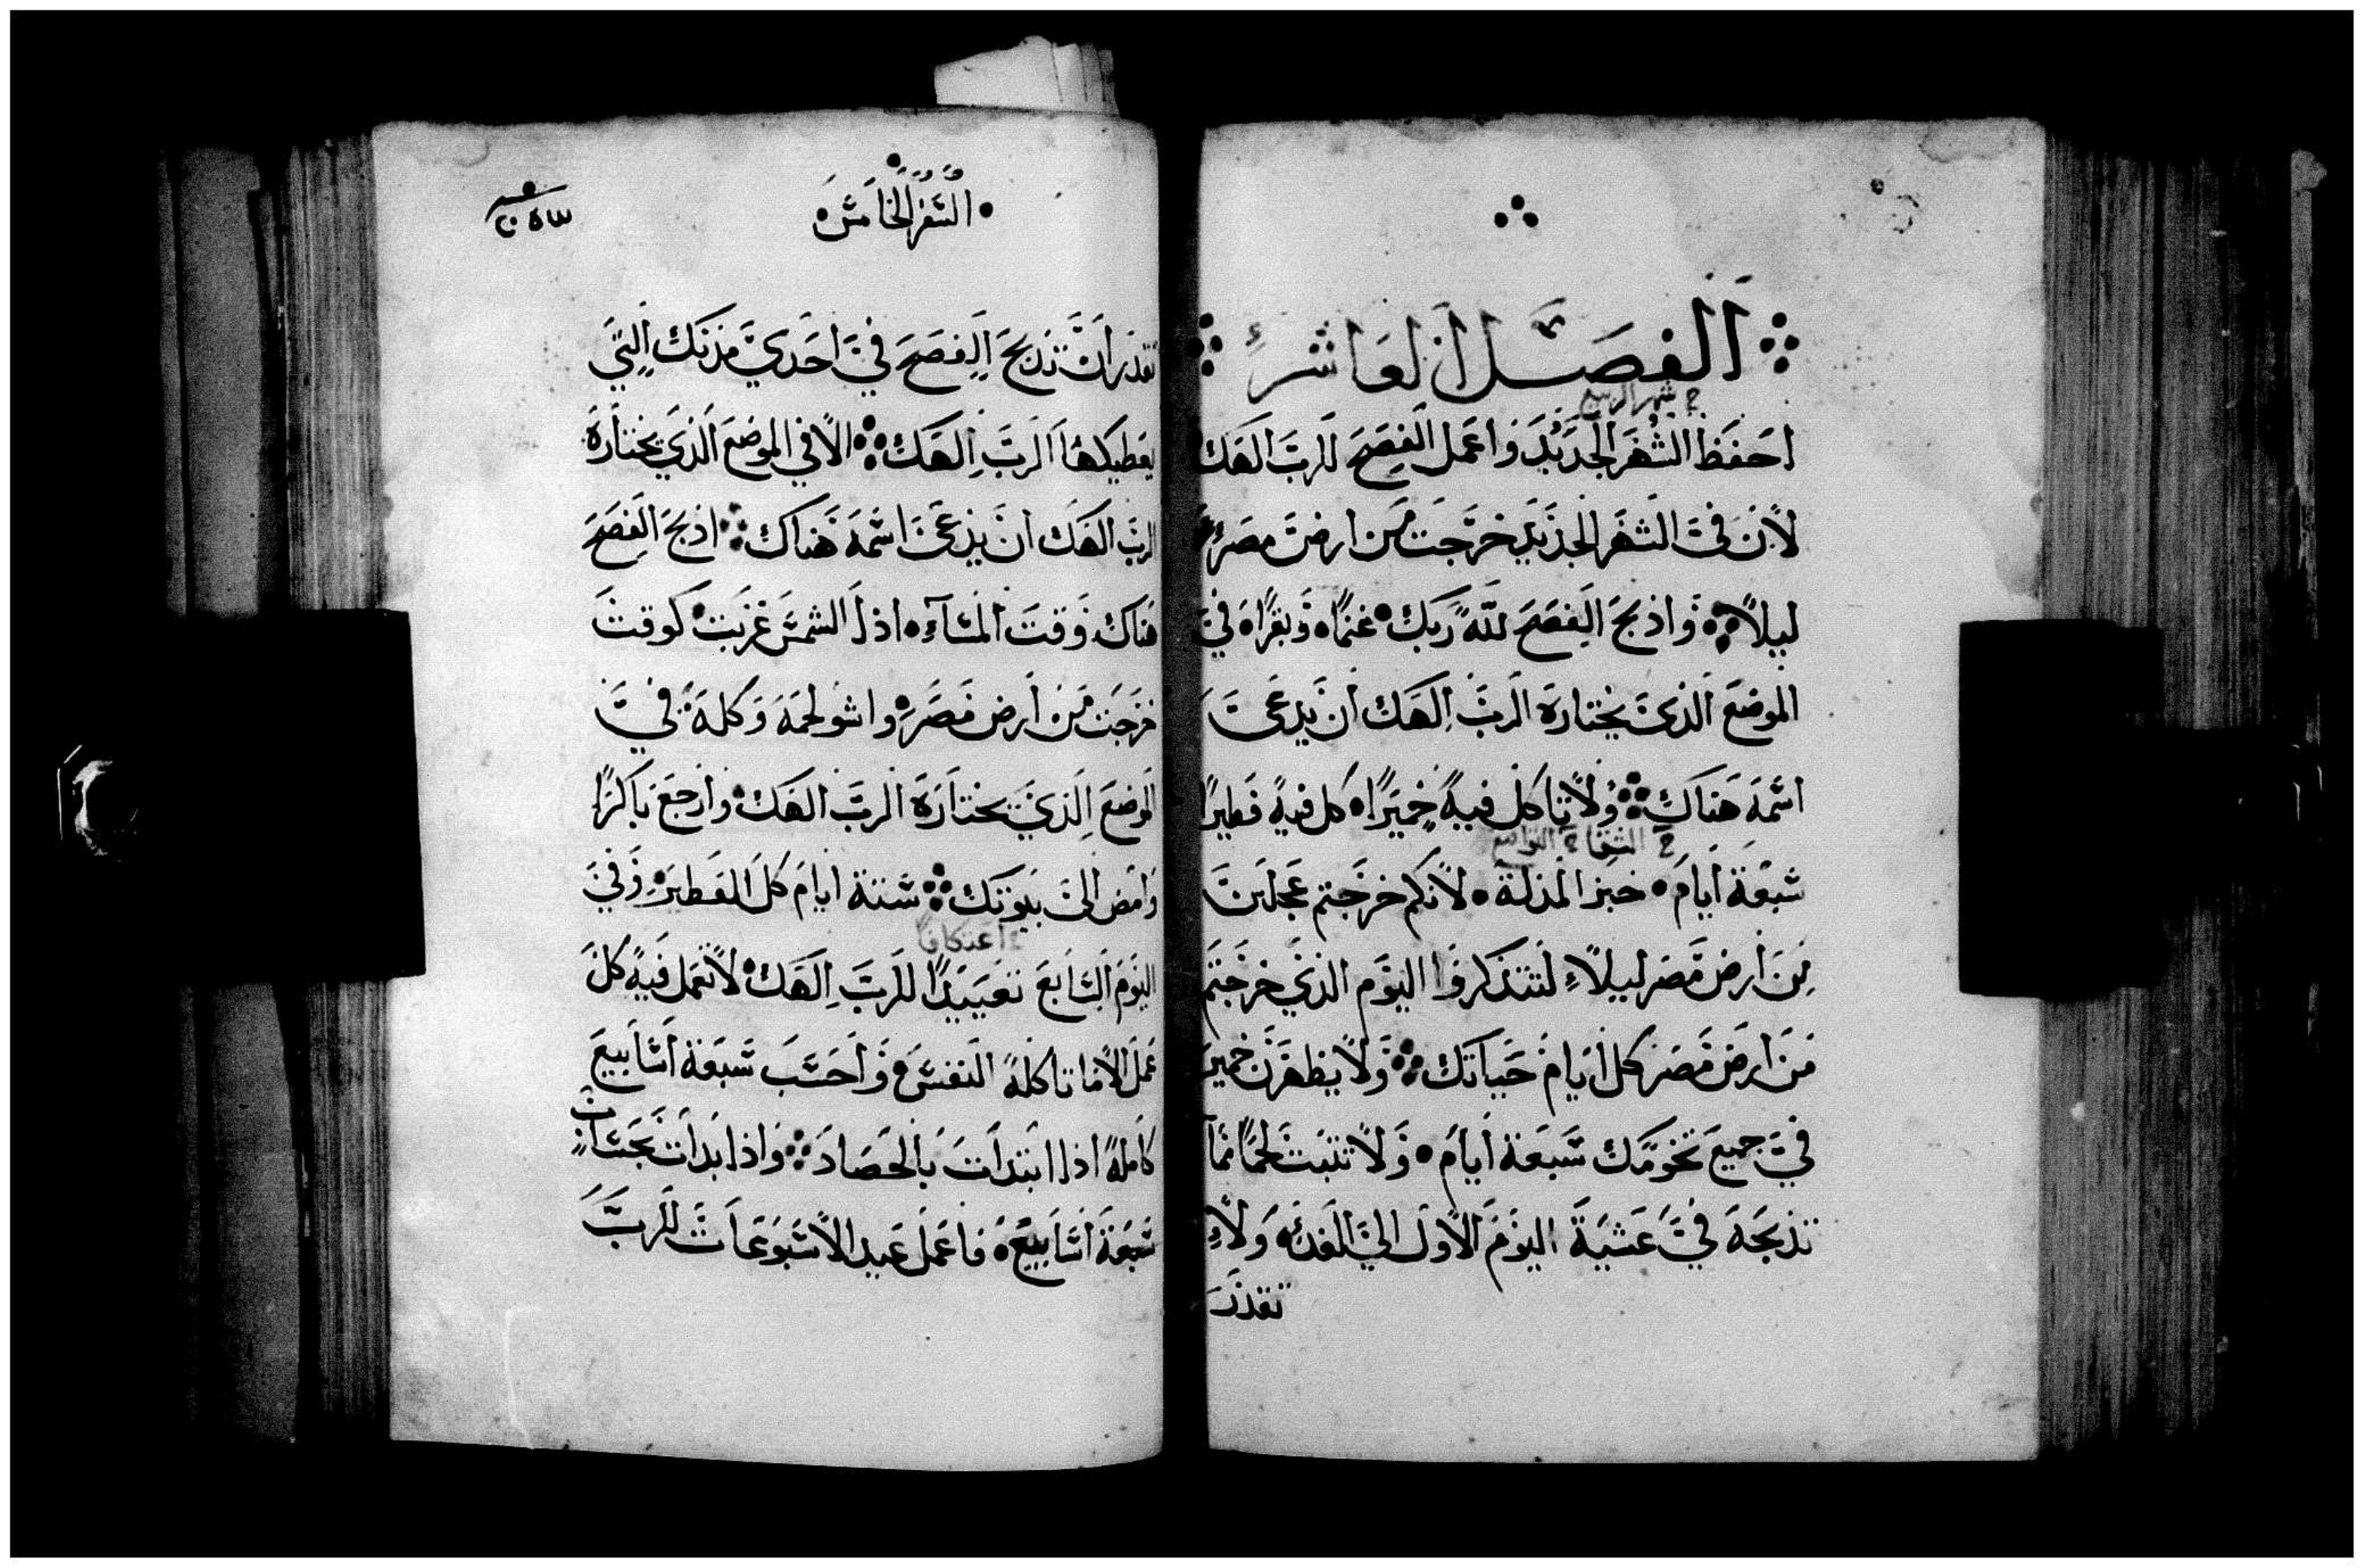 الفصل العاشر
ج شهر الربيع
احفظ الشهر الجديد واعمل الفصح للرب الهك
لان في الشهر الجديد خرجت من ارض مصر
ليلاً واذبح الفصح لله ربك غنماً وبقراً في
الموضع الذي يختاره الرب الهك ان يدعى
اسمه هناك ولا تاكل فيه خميراً كل فيه فطيراً
سبعة ايام خبز المذلة لانكم خرجتم عجلين
من ارض مصر ليلاً لتتذكروا اليوم الذي خرجتم
من ارض مصر كل ايام حياتك ولا يظهرن خمير
في جميع تخومك سبعة ايام ولا تثبت لحماً مما
تذبحه في عشية اليوم الاول الي الغد ولا
تقدر
السفر الخامس
تقدر ان تذبح الفصح في احدي مدنك التي
يعطيكها الرب الهك الا في الموضع الذي يختاره
الرب الهك ان يدعى اسمه هناك اذبح الفصح
هناك وقت المسآء اذا الشمس غربت كوقت
خرجت من ارض مصر واشو لحمه وكله في
الموضع الذي يختاره الرب الهك وارجع باكراً
وامض الى بيوتك ستة ايام كل الفطير وفي
اعتكافاً
اليوم السابع تعييداً للرب الهك لا تعمل فيه كل
عمل الا ما تاكله النفس واحسب سبعة اسابيع
كاملة اذا ابتدات بالحصاد واذا بدات تحسبان
سبعة اسابيع فاعمل عيد الاسبوعات للرب